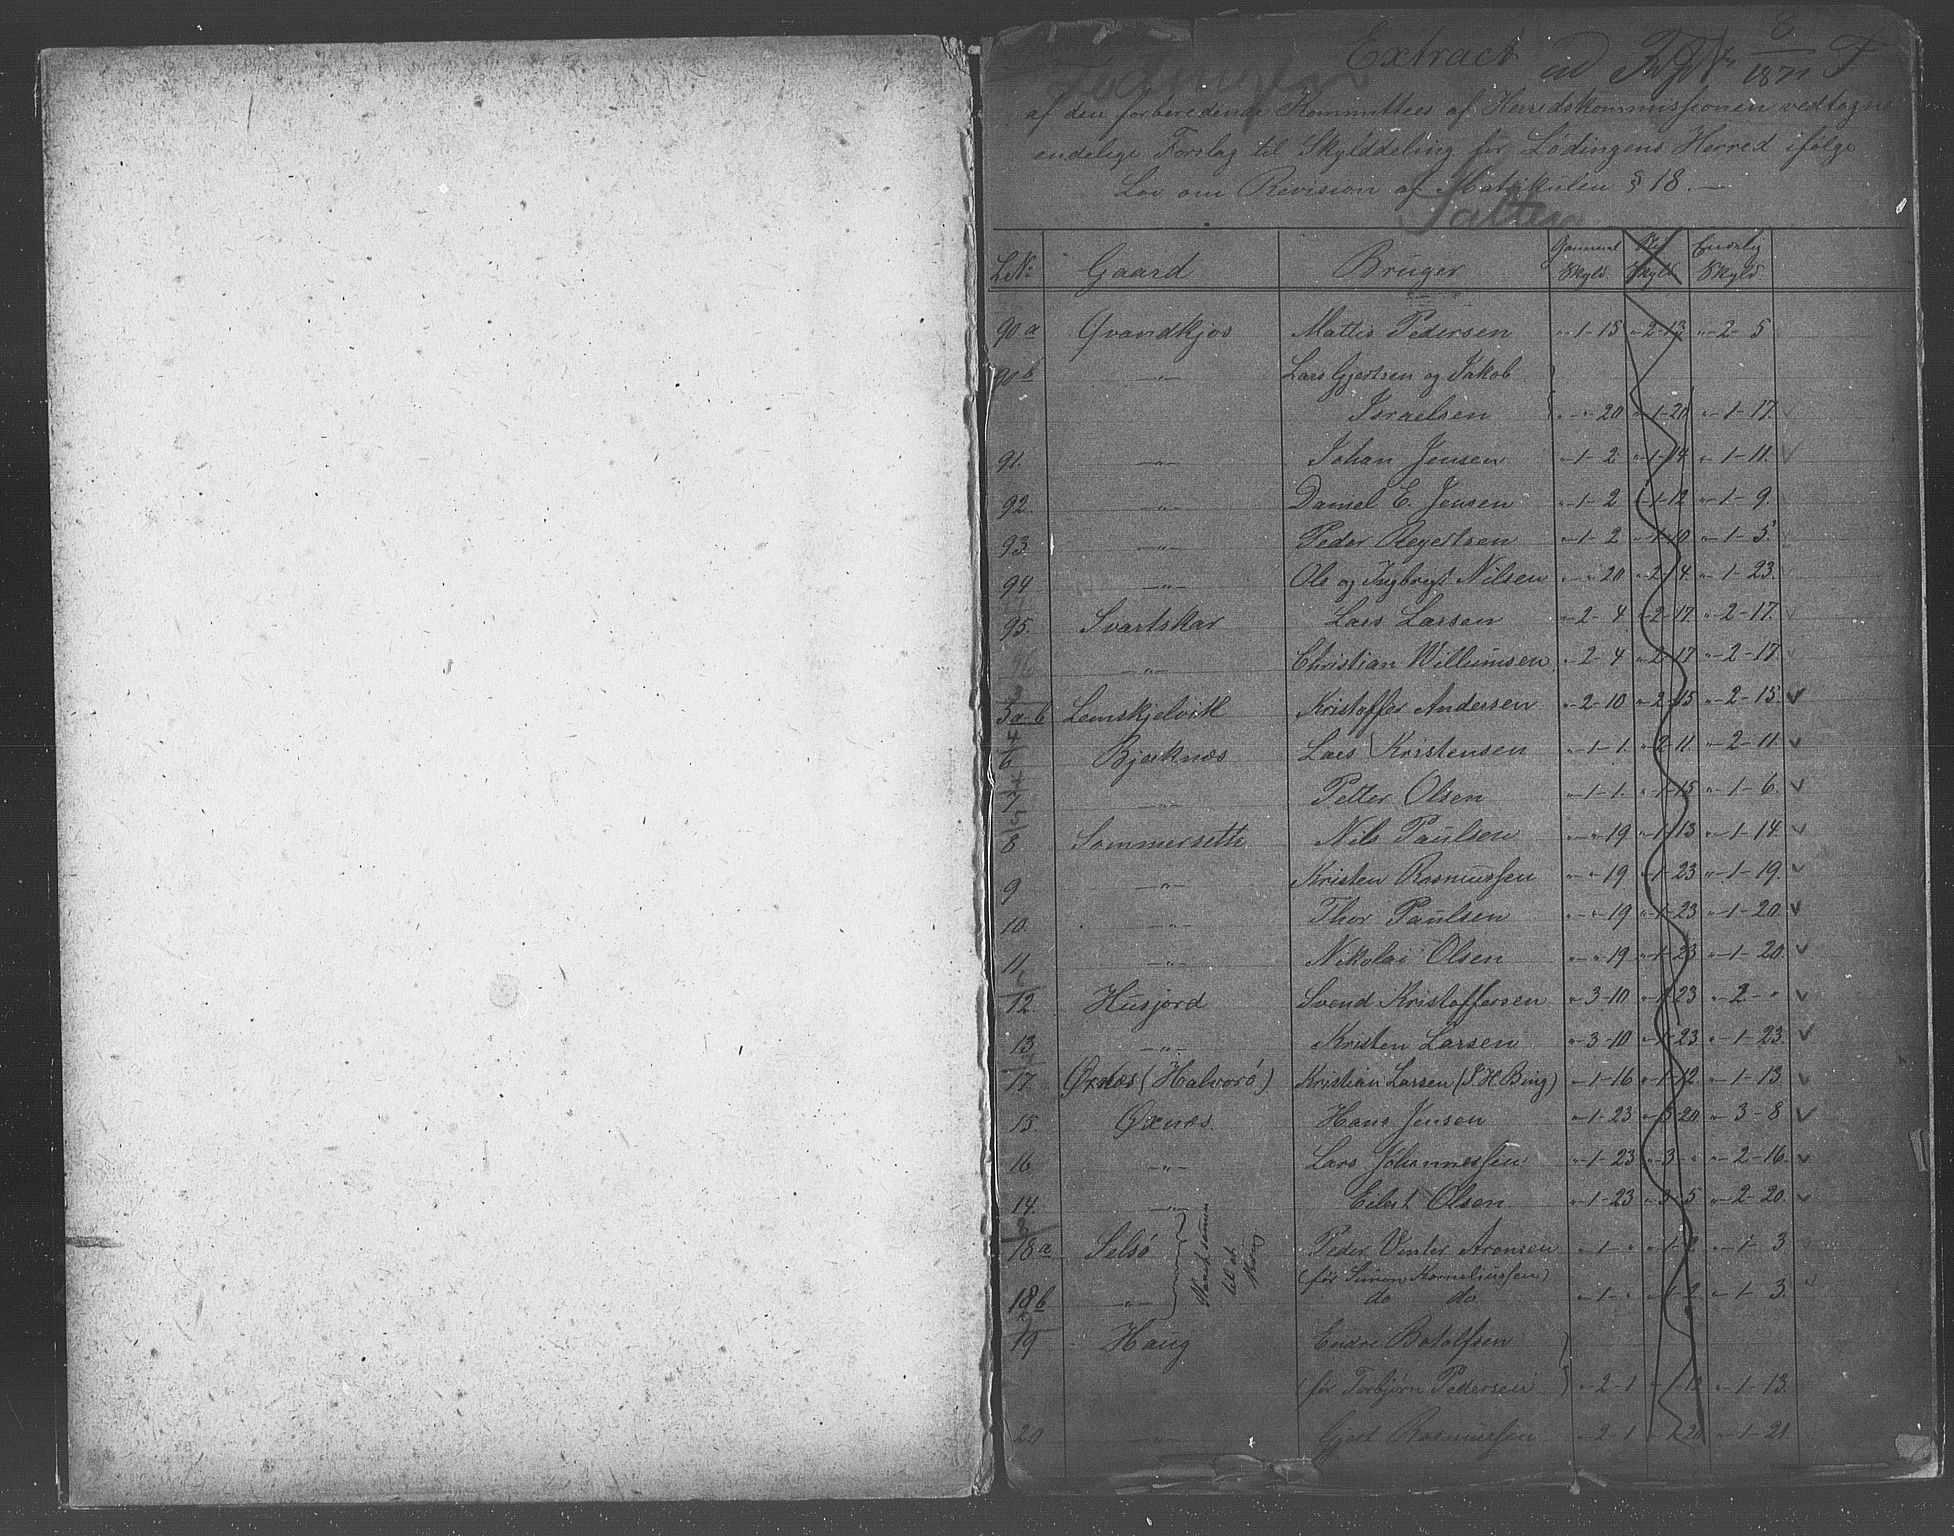 Extract
Lødingen
8
1871
af den forberedende Kommittees af Herredskommissionen vedtagne
endelige Forslag til Skylddeling for Lødingens Herred ifølge
Lov om Revision af Matrikulen § 18. —
Salten
L.№ Gaard Bruger Gammel Skyld Ny Skyld Endelig Skyld
90a Qvandkjos Mattis Pedersen "-1-15 "-2-13 "-2-5
90b —"— Lars Gjertsen og Jakob
Israelsen "-"-20 "-1-20 "-1-17.
91. —"— Johan Jensen "-1-2 "-1-14 "-1-11.
92. —"— Daniel E. Jensen "-1-2 "-1-12 "-1-9.
93 —"— Peder Regertsen "-1-2 "-1-10 "-1-5.
94 —"— Ole og Ingbrigt Nilsen "-"-20 "-2-4. "-1-23.
95. Svartskar Lars Larsen "-2-4 "-2-17. "-2-17.
96 —"— Christian Willumsen "-2-4 "-2-17 "-2-17.
5a-b Lemskjelvik Kristoffer Andersen "-2-10 "-2-15 "-2-15.
6 Bjerknæs Lars Kristensen "-1-1. "-2-11. "-2-11.
7 —"— Petter Olsen "-1-1. "-1-15 "-1-6.
8 Sommerseth Nils Paulsen "-"-19 "-1-13 "-1-14.
9 —"— Kristen Rasmussen "-"-19 "-1-23 "-1-19.
10. —"— Thor Paulsen "-"-19 "-1-23 "-1-20.
11. —"— Nikolai Olsen "-"-19 "-1-23 "-1-20.
12. Husjord Svend Kristoffersen "-3-10 "-1-23 "-2-"
13 —"— Kristen Larsen "-3-10 "-1-23 "-1-23.
17. Øxnæs (Halvorö) Kristian Larsen (S. H. Bing) "-1-16 "-1-12 "-1-13.
15. Øxnæs. Hans Jensen "-1-23 "-3-20 "-3-8
16 —"— Lars Johannessen "-1-23 "-3-" "-2-16.
14. —"— Eilert Olsen "-1-23 "-3-5 "-2-20.
18a Selsö Peder Venter Aronsen "-1-" "-1-2 "-1-3
(før Simon Korneliussen)
18b —"— do do "-1-" "-1-2 "-1-3.
til
Skov
19 Haug Endre Botolfsen
(før Torbjörn Pedersen) "-2-1 "-1-12 "-1-13.
20 —"— Gjert Rasmussen "-2-1 "-1-20 "-1-21